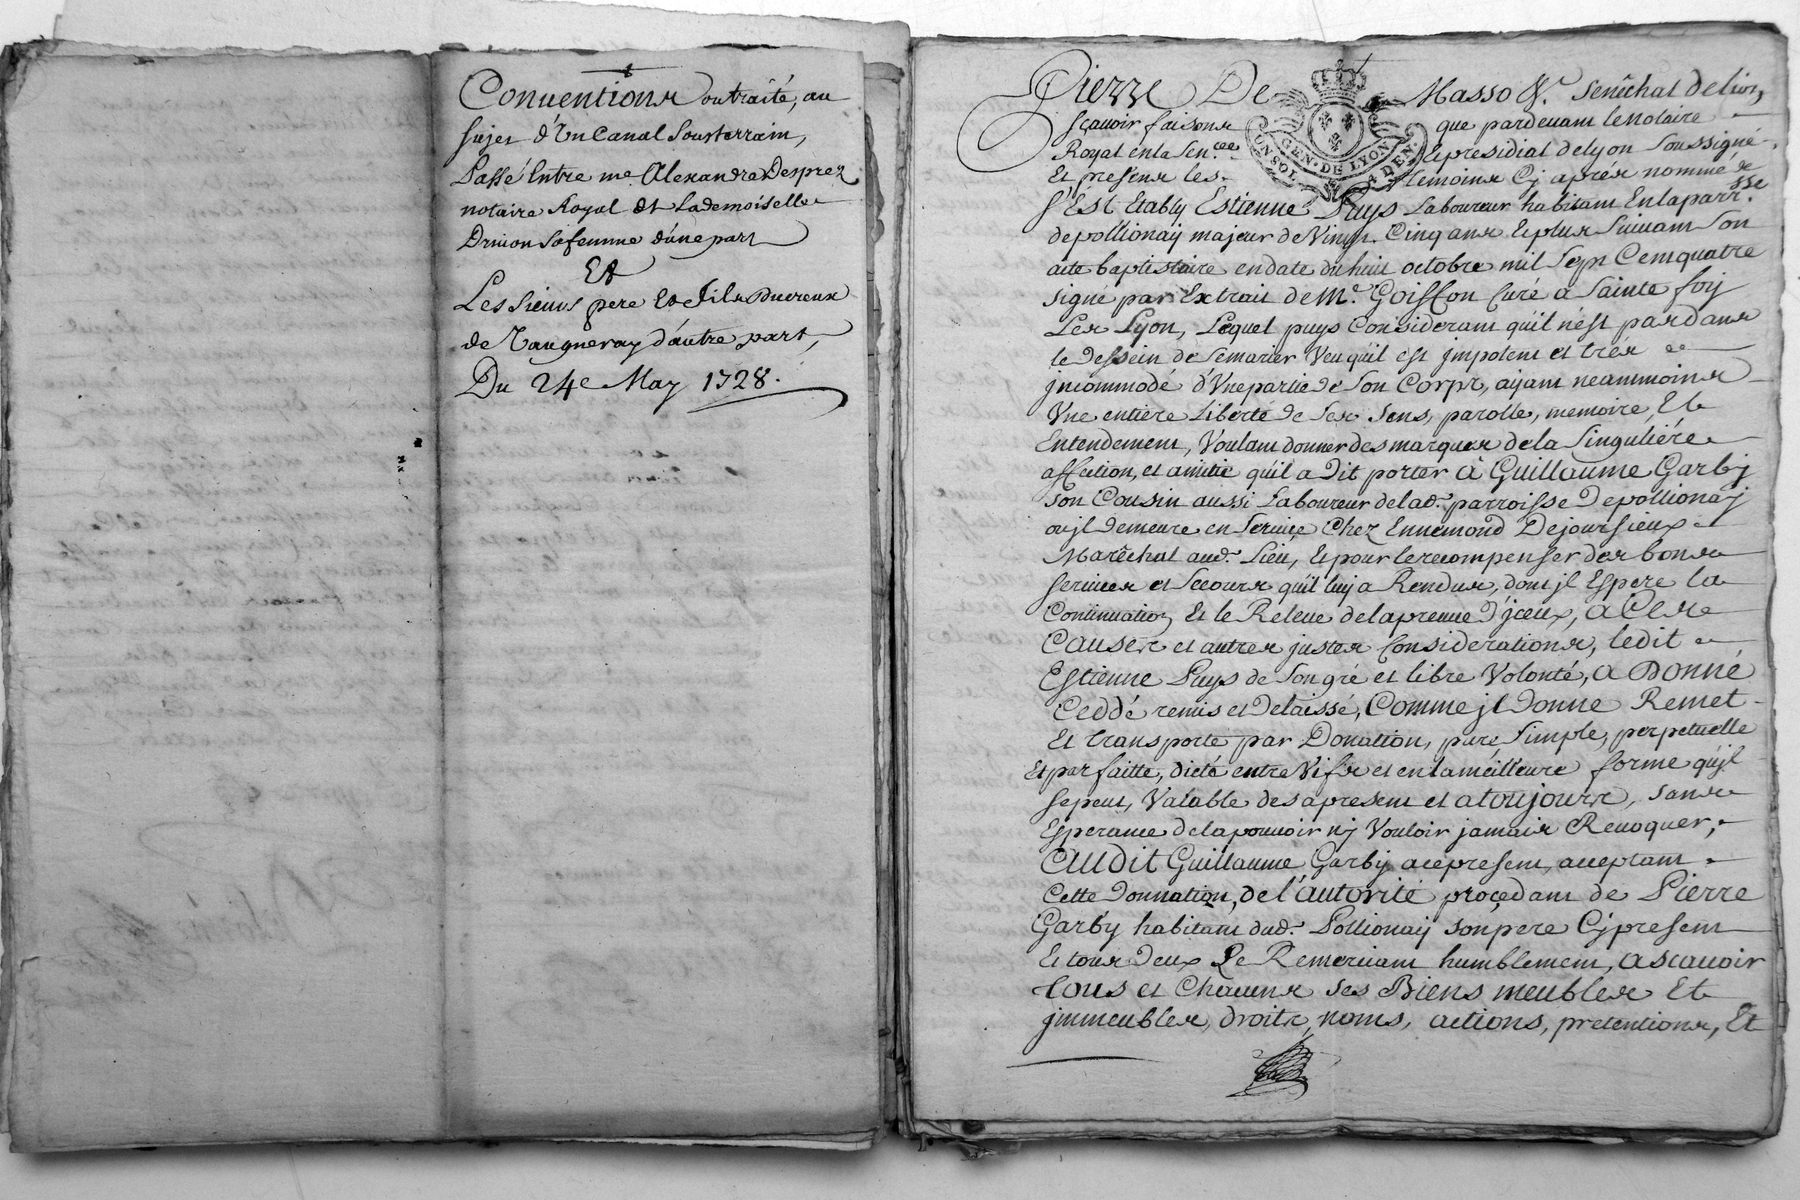 Conventions ou traité, au
sujet d'Un Canal Sousterrain,
Passé Entre me Alexandre Desprez
notaire Royal Et Lademoiselle
Drivon Sa femme d'une part
Et
Les Sieurs pere Et fils Ducreux
de Vaugneray d'autre part,
Du 24e May 1728.
Pierre De Masso Sr. Senêchal de Lion,
sçavoir faisons que pardevant le Notaire
Royal en la Sen.cée Et presidial de Lyon Soussigné
Et presens les temoins Cy aprés nommé
S'est Etably Estienne Puys Laboureur habitant En la parr.sse de
de pollionaÿ majeur de Vingt Cinq ans Et plus Suivant Son
acte baptistaire en date du huit octobre mil Sept Cent quatre
signé par Extrait de Mr. Goiffon Curé a Sainte foy
Les Lyon, Lequel puys Considerant qu'il n'est pas dans
le dessein de Semarier Veu quil est jmpotent et trés
jncommodé d'Une partie de Son Corps, aÿant neammoins
Une entière Liberté de Ses Sens, parolle, memoire, Et
Entendement, Voulant donner des marques de la Singuliére
affection, et amitié qu'il a Dit porter à Guillaume Garby
son Cousin aussi Laboureur de lad. parroisse De pollionaÿ
ou jl Demeure en Service Chez Ennemond Dejoursieux
Marêchal aud. Lieu, Et pour le recompenser des bons
services et Secours qu'il luy a Rendus, dont jl Espere la
Continuation, Et le Releve de la preuve D'jceux, a Ces
Causes et autres justes Considerations, ledit
Estienne Puys de Son gré et libre Volonté, a Donné
Ceddé remis et Delaissé, Comme jl Donne Remet
Et transporte par Donation, pure Simple, perpetuelle
Et parfaitte, dicte entre Vifs et en la meilleure forme qu'jl
se peut, Valable des apresent et a toujours, sans
Esperance de la pouvoir nj Vouloir jamais Revoquer,
Audit Guillaume Garby ace present, acceptant
Cette Donnation, de l'autorité procedant de Pierre
Garby habitant dud. Pollionaÿ son pere Cy present
Et tous Deux Le Remerciant humblement, a scavoir
tous et Chacuns ses Biens meubles Et
jmmeubles, droits, noms, actions, pretentions, Et
GEN. DE LYON
UN SOL 4 DEN.